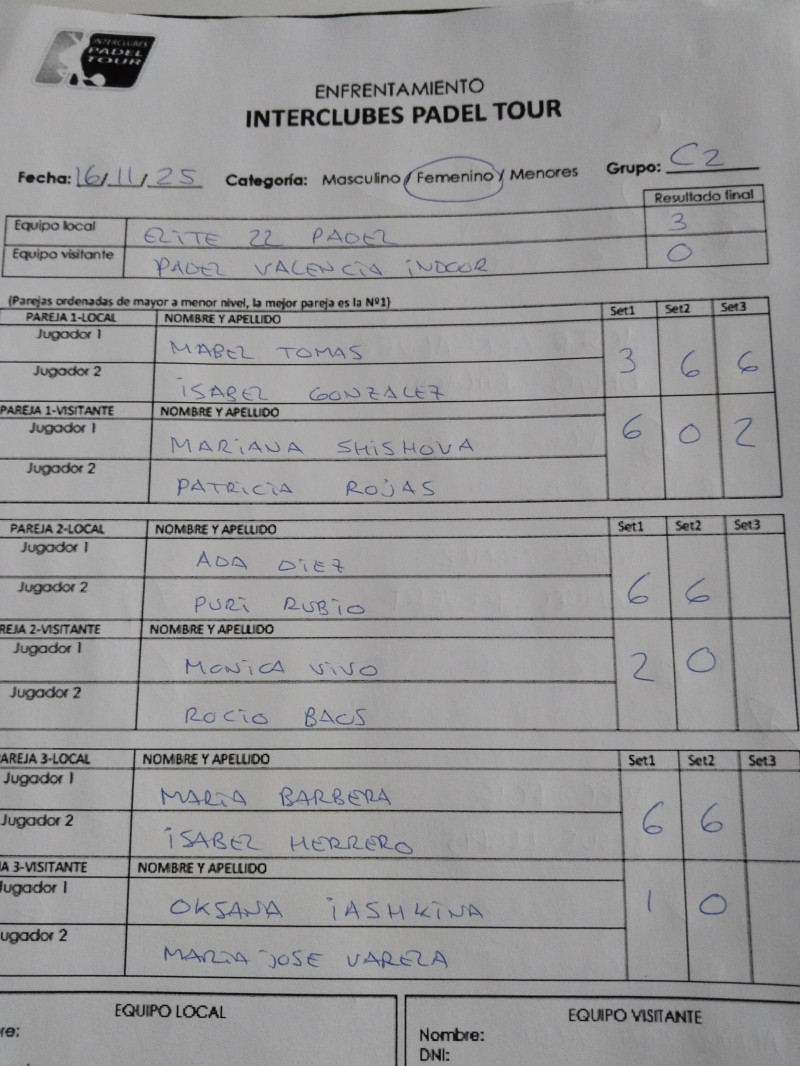 INTERCLUBES
PADEL
TOUR
ENFRENTAMIENTO
INTERCLUBES PADEL TOUR
Fecha: 16/11/25 Categoría: Masculino / Femenino / Menores Grupo: C2
Resultado final
Equipo local ELITE 22 PADEL 3
Equipo visitante PADEL VALENCIA INDOOR 0
(Parejas ordenadas de mayor a menor nivel, la mejor pareja es la Nº1)
PAREJA 1-LOCAL NOMBRE Y APELLIDO Set1 Set2 Set3
Jugador 1 MABEL TOMAS
Jugador 2 ISABEL GONZALEZ 3 6 6
PAREJA 1-VISITANTE NOMBRE Y APELLIDO
Jugador 1 MARIANA SHISHOVA 6 0 2
Jugador 2 PATRICIA ROJAS
PAREJA 2-LOCAL NOMBRE Y APELLIDO Set1 Set2 Set3
Jugador 1 ADA DIEZ
Jugador 2 PURI RUBIO 6 6
REJA 2-VISITANTE NOMBRE Y APELLIDO
Jugador 1 MONICA VIVO 2 0
Jugador 2 ROCIO BAOS
AREJA 3-LOCAL NOMBRE Y APELLIDO Set1 Set2 Set3
Jugador 1 MARIA BARBERA
Jugador 2 ISABEL HERRERO 6 6
A 3-VISITANTE NOMBRE Y APELLIDO
Jugador 1 OKSANA IASHKINA 1 0
ugador 2 MARIA JOSE VARELA
EQUIPO LOCAL EQUIPO VISITANTE
re: Nombre:
DNI: